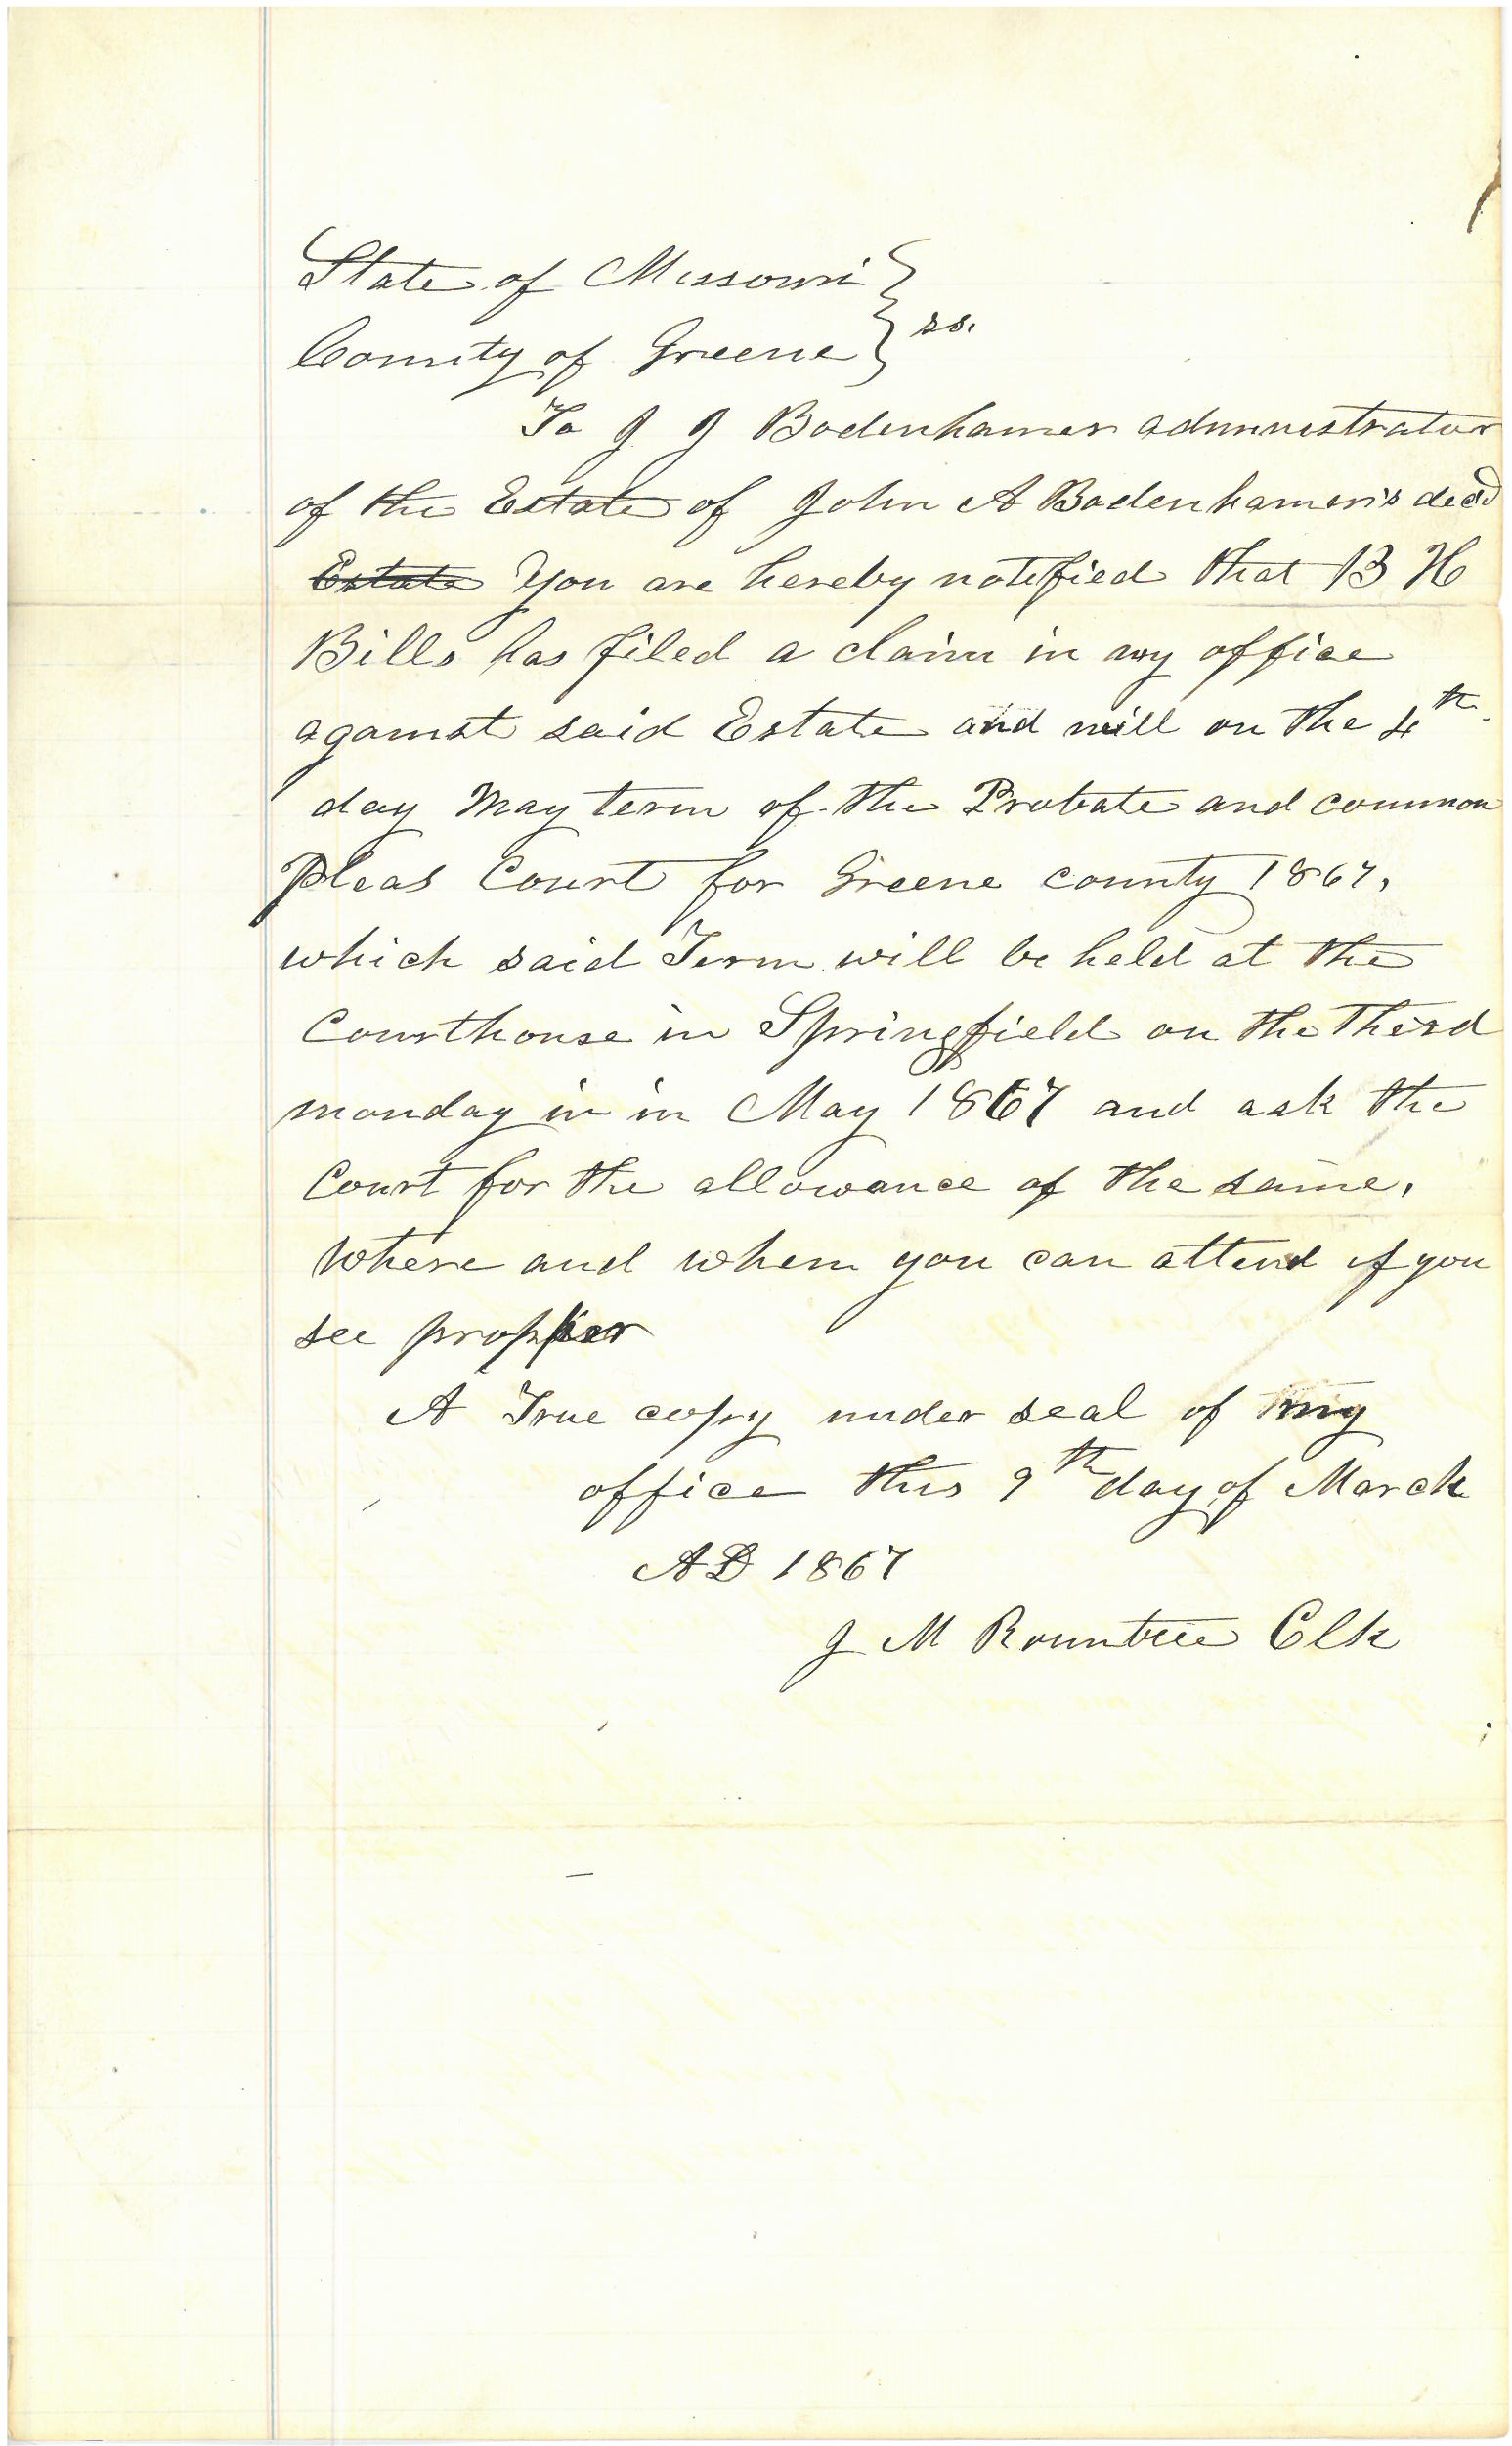 State of Missouri }
County of Greene } ss.
To J J Bodenhamer administrator
of the Estate of John A Bodenhamer's decd
Estate You are hereby notified that B H
Bills has filed a claim in my office
against said Estate and will on the 4th
day May term of the Probate and common
Pleas Court for Greene county 1867,
which said Term will be held at the
Courthouse in Springfield on the Third
monday in in May 1867 and ask the
Court for the allowance of the same,
Where and when you can attend if you
see propper
A True copy under seal of my
office this 9th day of March
AD 1867
J M Rountree Clk